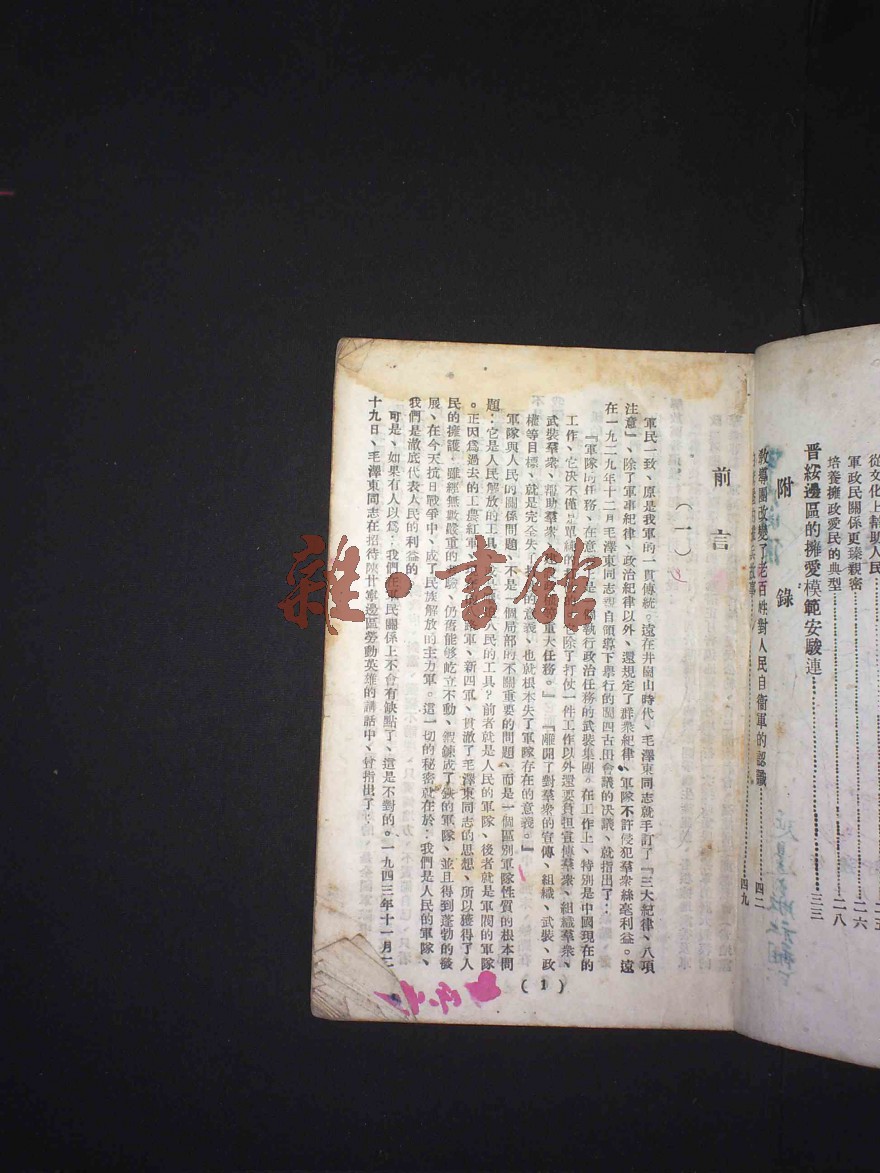 從文化上幫助人民
軍政民關係更臻親密………………二六
培養擁政愛民的典型………………二八
晋綏邊區的擁愛模範安駿連………………三三
附錄
教導團改變了老百姓對人民自衞軍的認識………………四二
四九
前言
(一)
軍民一致、原是我軍的一貫傳統。遠在井崗山時代、毛澤東同志就手訂了『三大紀律、八項
注意』、除了軍事紀律、政治紀律以外、還規定了群衆紀律、軍隊不許侵犯羣衆絲毫利益。遠
在一九二九年十二月毛澤東同志親自領導下舉行的閩西古田會議的决議、就指出了:
『軍隊的任務、在意 是 執行政治任務的武裝集團。在工作上、特別是中國現在的
工作、它决不僅是單純的 它除了打仗一件工作以外還要負担宣傳羣衆、組織羣衆、
武裝羣衆、幫助羣衆 重大任務。』『離開了對羣衆的宣傳、組織、武裝、政
權等目標、就是完全失了 的意義、也就根本失了軍隊存在的意義。』
軍隊與人民的關係問題、不是一個局部的不關重要的問題、而是一個區別軍隊性質的根本問
題:它是人民解放的工具 人民的工具?前者就是人民的軍隊、後者就是軍閥的軍隊
。正因爲過去的工農紅軍 路軍、新四軍、貫澈了毛澤東同志的思想、所以獲得了人
民的擁護。雖經無數嚴重的 驗、仍舊能够屹立不動、鍛鍊成了鐵的軍隊、並且得到蓬勃的發
展、在今天抗日戰爭中、成了民族解放的主力軍。這一切的秘密就在於:我們是人民的軍隊、
我們是澈底代表人民的利益的
可是、如果有人以爲:我們在軍民關係上不會有缺點了、這是不對的。一九四三年十一月二
十九日、毛澤東同志在招待陝甘寧邊區勞動英雄的講話中、曾指出了:
(1)
雜·書館